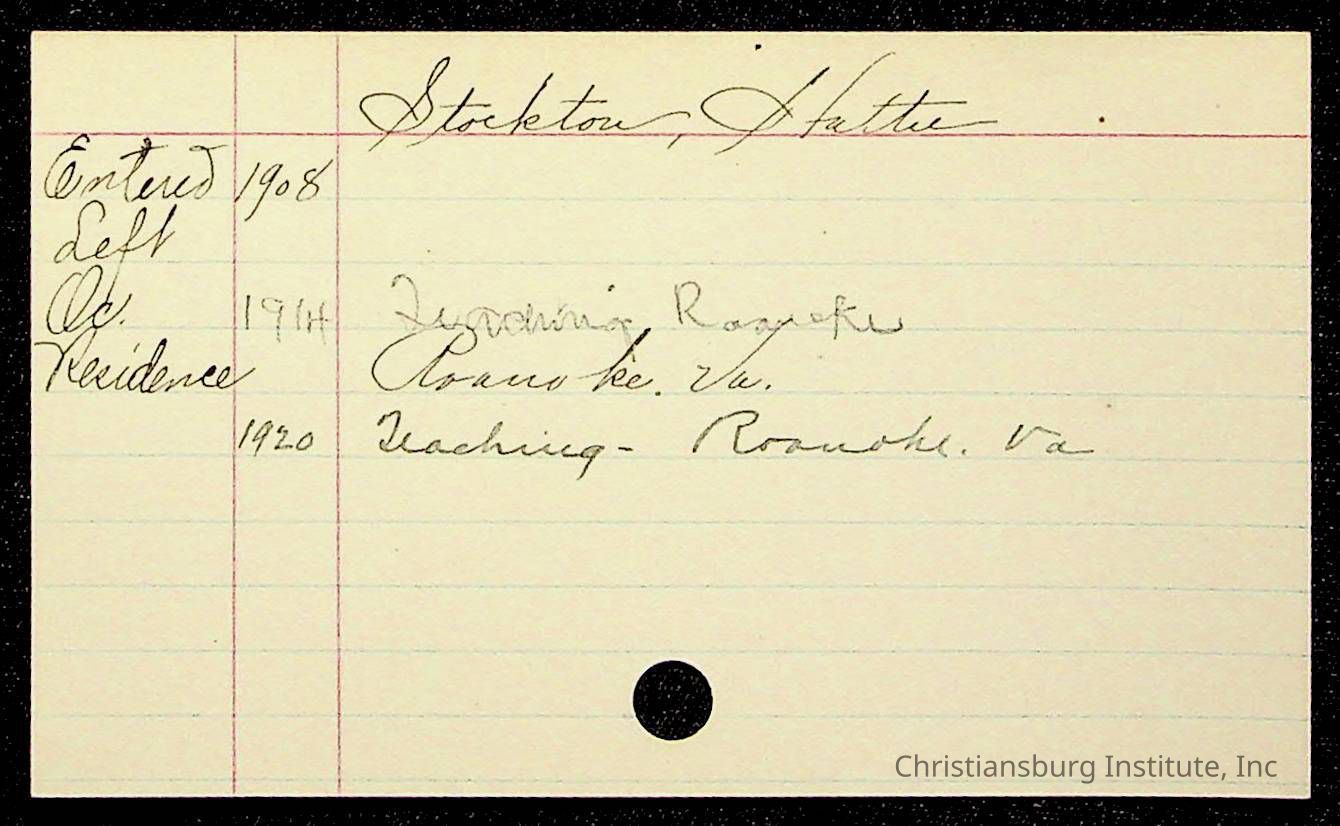 Stockton, Hattie
Entered 1908
Left
Oc. 1914 Teaching Roanoke
Residence Roanoke. Va.
1920 Teaching - Roanoke. Va
Christiansburg Institute, Inc